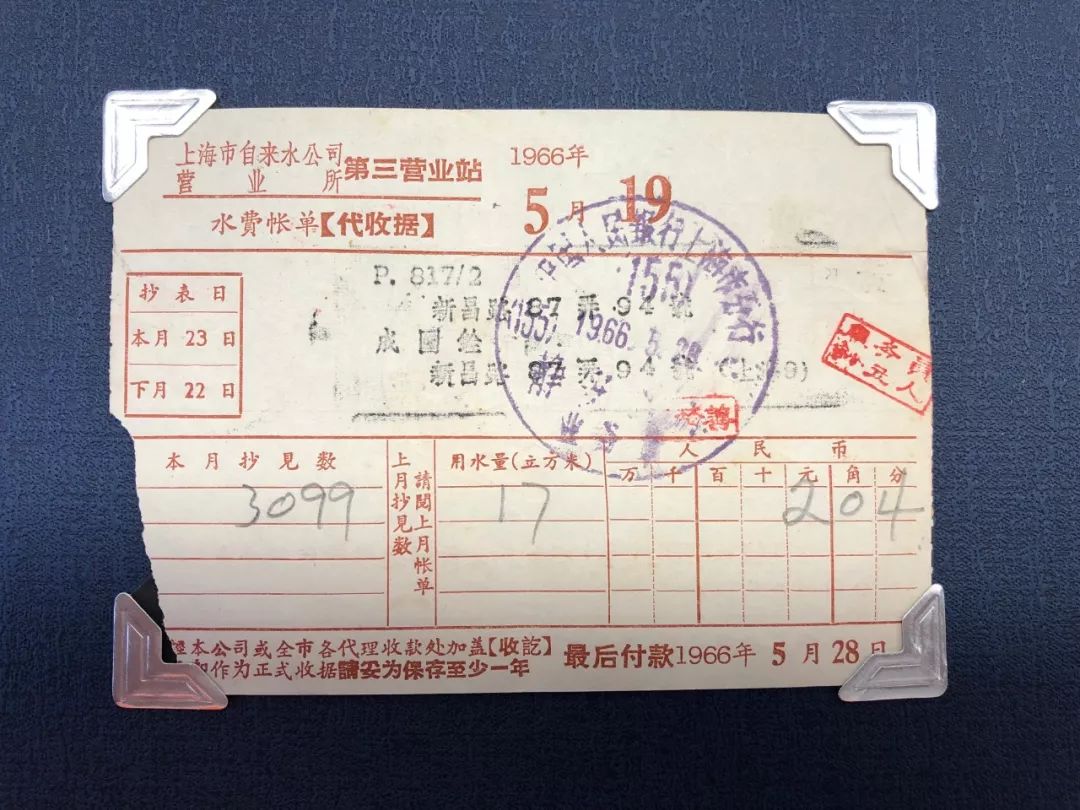 上海市自来水公司
营业所
第三营业站
1966年
5月19
水费帐单【代收据】
抄表日
本月23日
下月22日
P. 817/2
新昌路 87 弄 94 號
新昌路 87 弄 94 號
中国人民银行上海市
1551
1966. 5. 2
本月抄见数
上月抄见数
請閲上月帐单
用水量(立方米)
人民币
万千百十元角分
3099
17
204
本公司或全市各代理收款处加盖【收訖】
作为正式收据請妥为保存至少一年
最后付款1966年5月28日